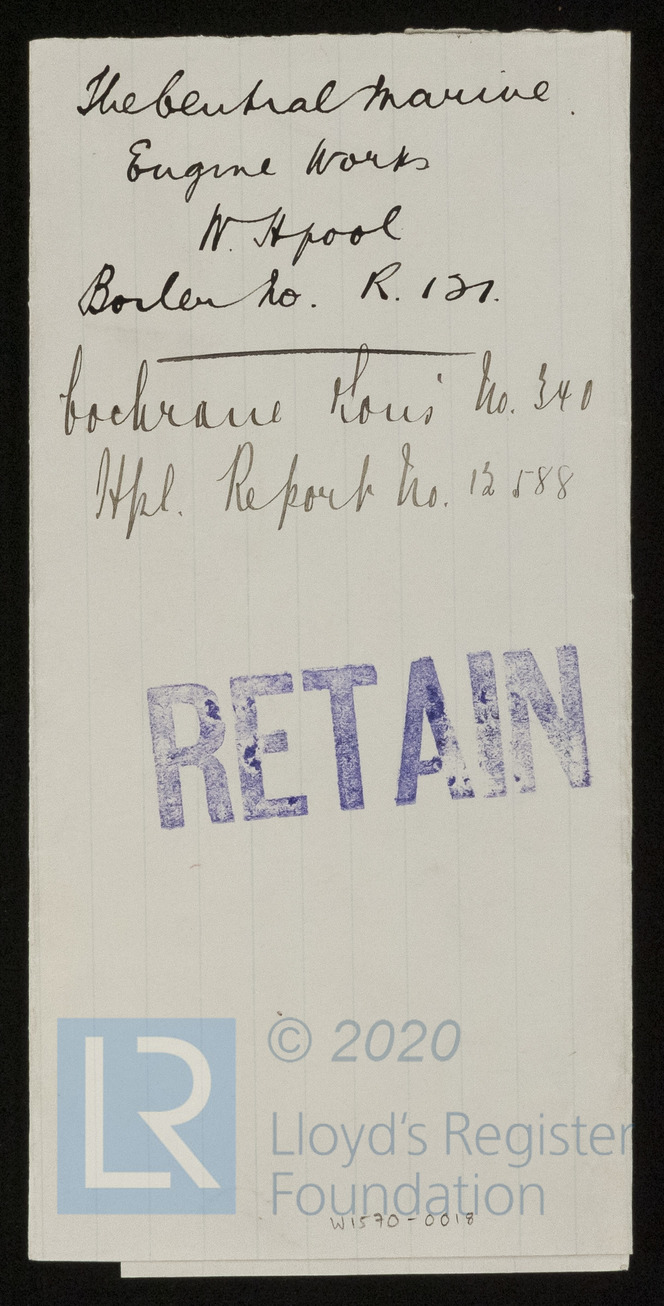 The Central Marine
Engine Works
W. Hpool
Boiler No. R. 121.
Cochrane & Sons' No. 340
Hpl. Report No. 12588
RETAIN
LR
© 2020
Lloyd's Register
Foundation
W1570-0018